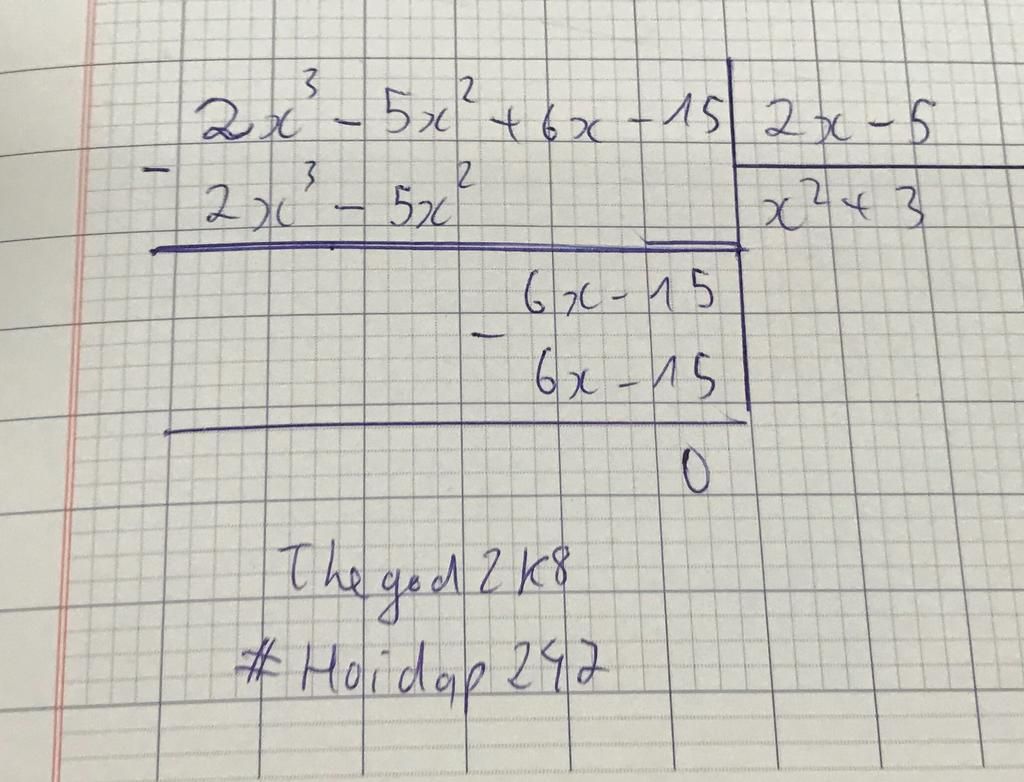 2x³ - 5x² + 6x - 15 | 2x - 5
- 2x³ - 5x² | x² + 3
6x - 15
- 6x - 15
0
The god 2k8
# Hoidap 247